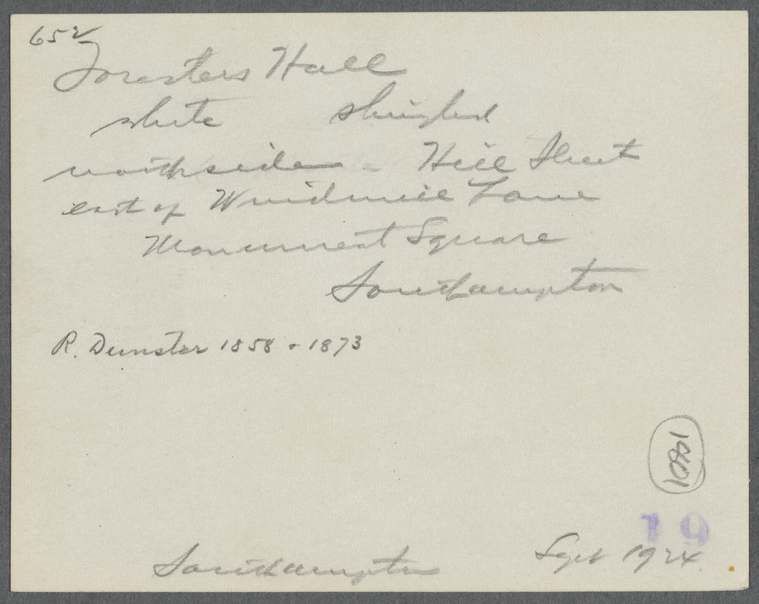 652
Foresters Hall
white shingled
north side - Hill Street
east of Windmill Lane
Monument Square
Southampton
R. Dunster 1858 - 1873
19
Southampton Sept 1924